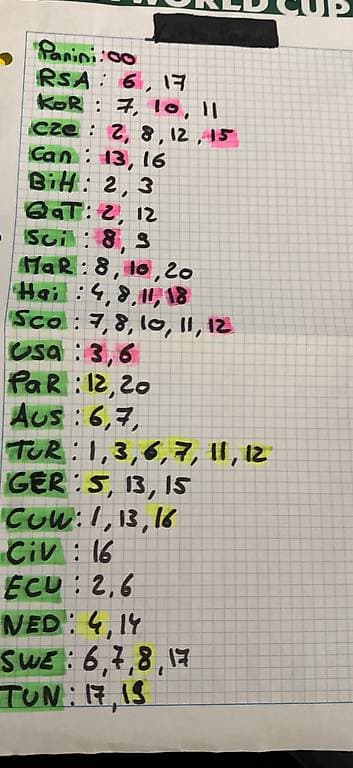 WORLD CUP
Panini: 00
RSA: 6, 17
KOR: 7, 10, 11
CZE: 2, 8, 12, 15
Can: 13, 16
BiH: 2, 3
QaT: 2, 12
SUi: 8, 9
MaR: 8, 10, 20
Hai: 4, 8, 11, 18
SCO: 7, 8, 10, 11, 12
USa: 3, 6
PaR: 12, 20
AUS: 6, 7,
TUR: 1, 3, 6, 7, 11, 12
GER: 5, 13, 15
CUW: 1, 13, 16
CiV: 16
ECU: 2, 6
NED: 4, 14
SWE: 6, 7, 8, 17
TUN: 17, 19